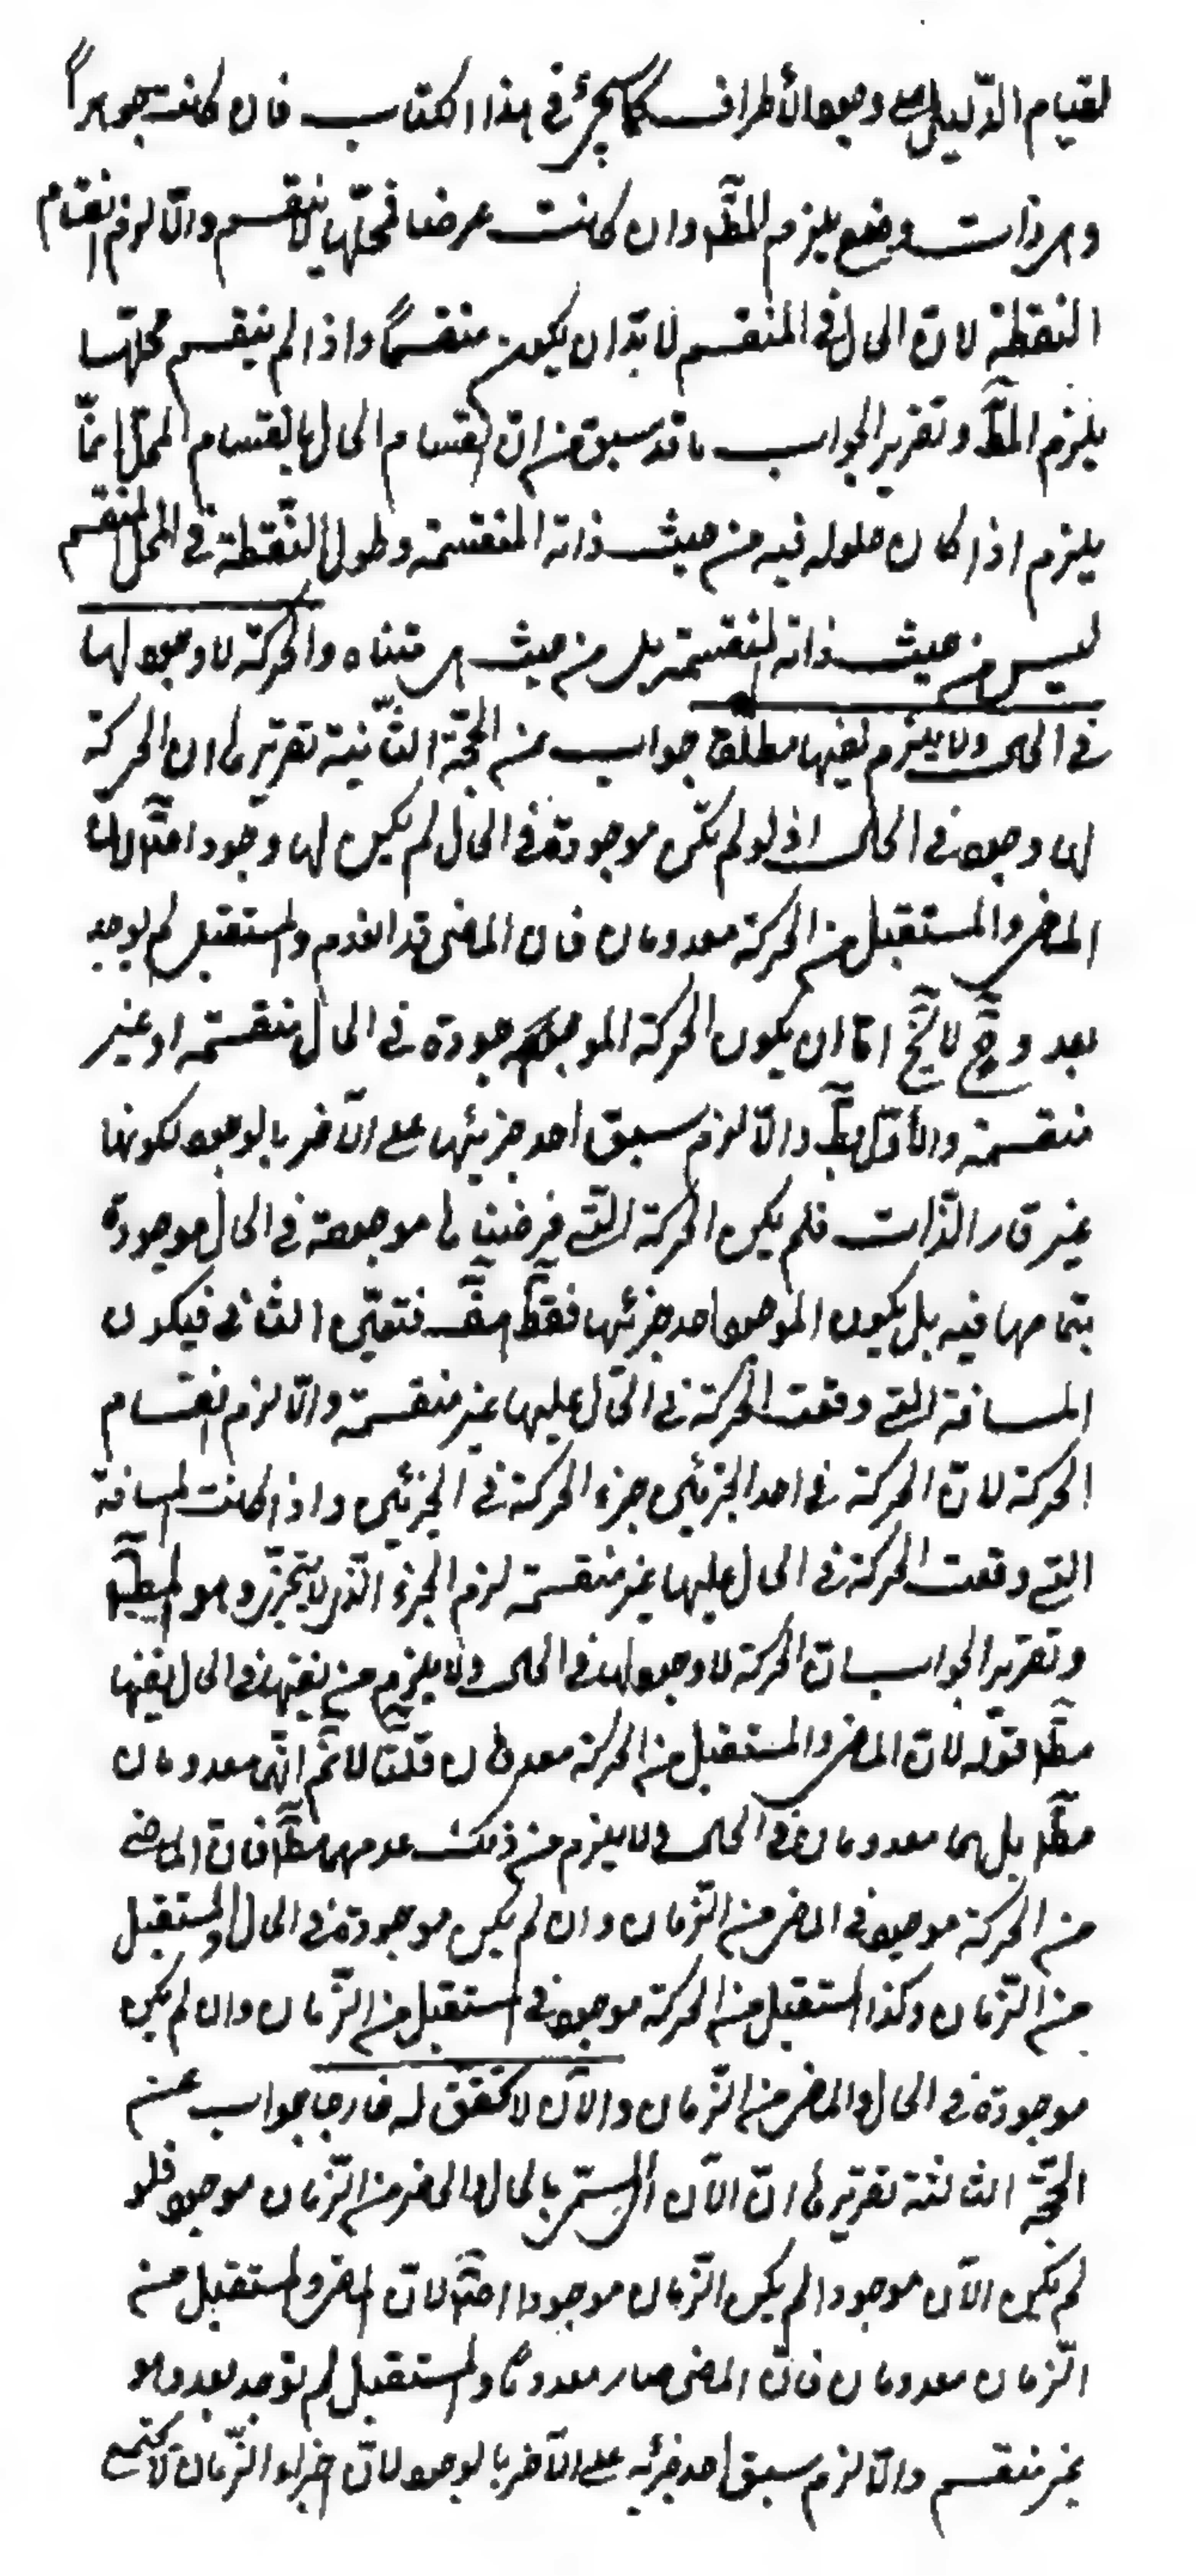 لقيام الدّليل على وجود الأطراف كما سيجئ فى هذا الكتاب فان كانت جوهراً
وهى ذات وضع يلزم المطّ وان كانت عرضا فمحلّها لا ينقسم والّا لزم انقسام
النقطة لانّ الحال فى المنقسم لا بدّ ان يكون منقسماً واذا لم ينقسم محلّها
يلزم المطّ وتقرير الجواب ما قد سبق من انّ انقسام الحال بانقسام المحلّ انّما
يلزم اذا كان حلوله فيه من حيث ذاته المنقسمة وحلول النّقطة فى المحل المنقسم
ليس من حيث ذاته المنقسمة بل من حيث هى متناه والحركة لا وجود لها
فى الحال ولا يلزم نفيها مطلقا جواب عن الحجّة الثّانية تقريرها ان الحركة
لها وجود فى الحال اذ لو لم تكن موجودة فى الحال لم يكن لها وجود اصلا لانّ
الماضى والمستقبل من الحركة معدومان فان الماضى قد انعدم والمستقبل لم يوجد
بعد وح لا يخ امّا ان يكون الحركة الموجودة فى الحال منقسمة او غير
منقسمة والأوّل بط والّا لزم سبق احد جزئيها على الآخر بالوجود لكونها
غير قار الذّات فلم يكن الحركة الّتى فرضناها موجودة فى الحال موجودة
بتمامها فيه بل يكون الموجود احد جزئيها فقط هف فتعيّن الثانى فيكون
المسافة الّتى وقعت الحركة فى الحال عليها غير منقسمة والّا لزم انقسام
الحركة لانّ الحركة فى احد الجزئين جزء الحركة فى الجزئين واذا كانت المسافة
الّتى وقعت الحركة فى الحال عليها غير منقسمة لزم الجزء الّذى لا يتجزّى وهو المط
وتقرير الجواب انّ الحركة لا وجود لها فى الحال ولا يلزم من نفيها فى الحال نفيها
مطّ قوله لانّ الماضى والمستقبل من الحركة معدومان قلنا لا نم انّهما معدومان
مطّ بل هما معدومان فى الحال ولا يلزم من ذلك عدمهما مطّ فانّ الماضى
من الحركة موجود فى الماضى من الزّمان وان لم يكن موجودة فى الحال والمستقبل
من الزّمان وكذا المستقبل من الحركة موجود فى المستقبل من الزّمان وان لم يكن
موجودة فى الحال والماضى من الزّمان والآن لا تحقّق له خارجا جواب عن
الحجّة الثالثة تقريرها انّ الآن المسمّى بالحال والحاضر من الزّمان موجود فلو
لم يكن الآن موجودا لم يكن الزّمان موجودا اصلا لانّ الماضى والمستقبل من
الزّمان معدومان فانّ الماضى صار معدوماً والمستقبل لم يوجد بعد وهو
غير منقسم والّا لزم سبق احد جزئيه على الآخر بالوجود لانّ اجزاء الزّمان لا تجتمع